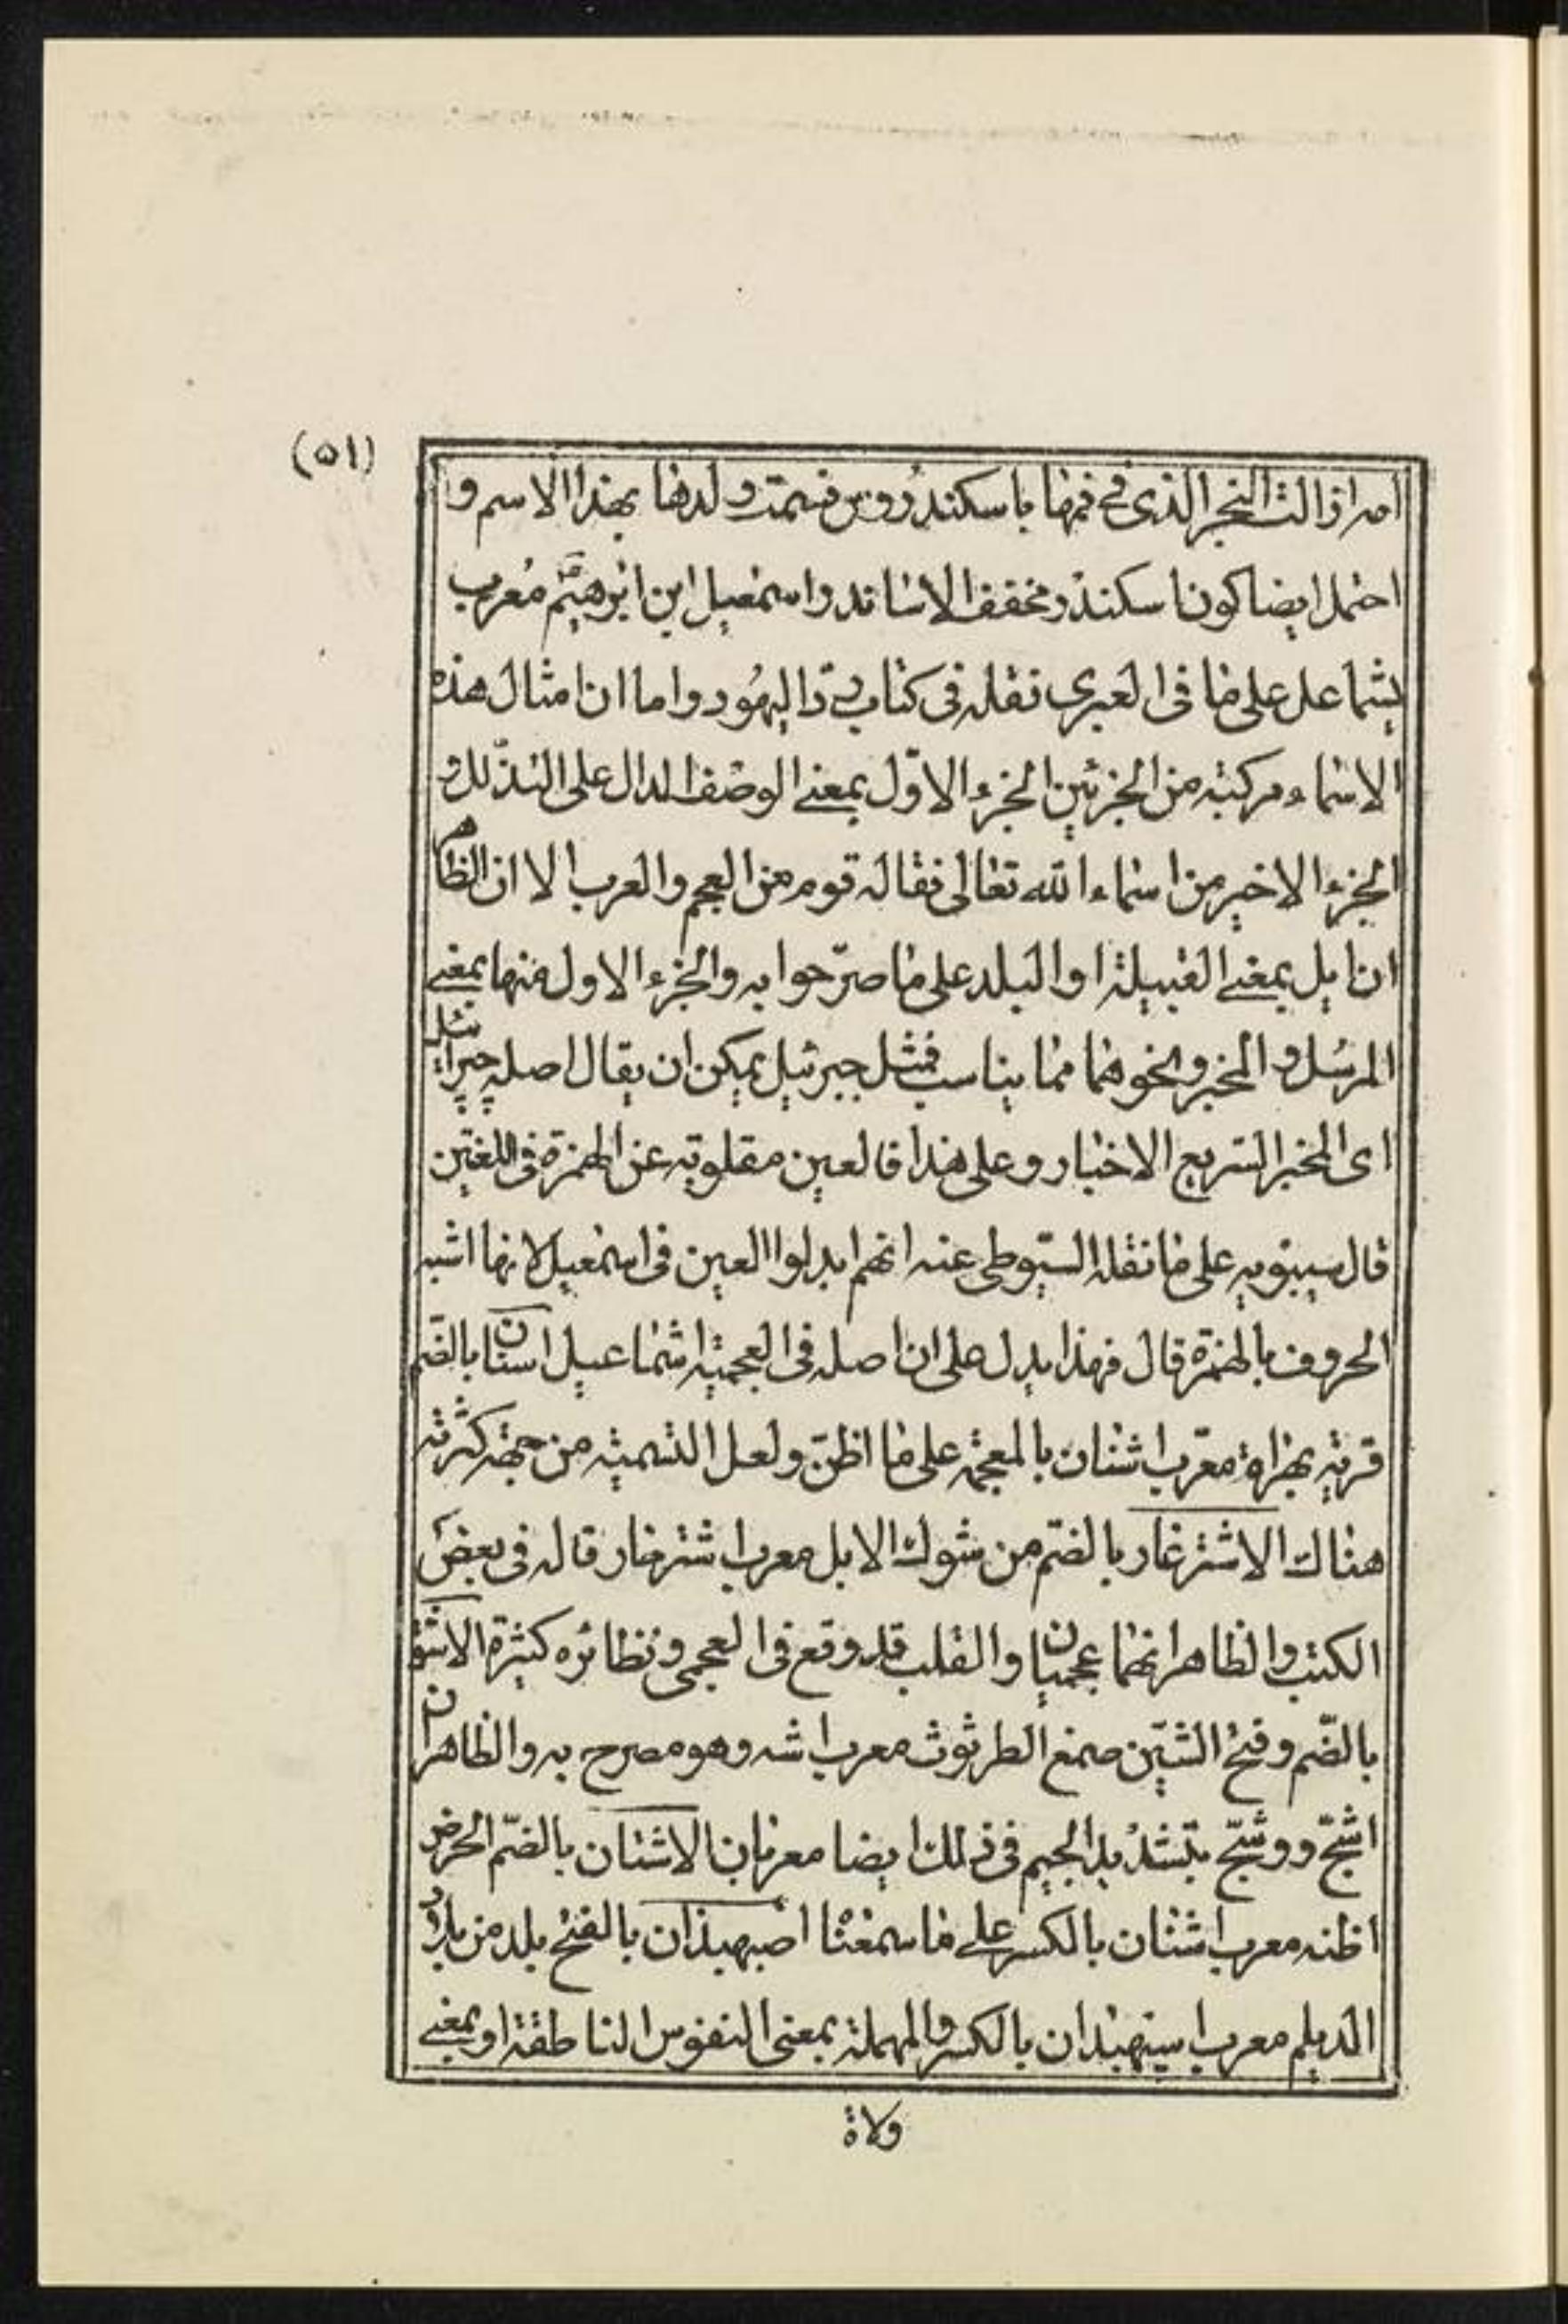 (٥١)
امه ازالت البخر الذى فى فمها باسكندروس فسمت ولدها بهذا الاسم و
احتمل ايضا كون اسكندر مخفف الاشاند واسمعيل ابن ابرهيم معرب
يشماعل على ما فى العبرى نقله فى كتاب رد اليهود واما ان امثال هذه
الاسماء مركبته من الجزئين الجزء الاوّل بمعنى الوصف الدال على التذلل و
الجزء الاخير من اسماء الله تعالى فقاله قوم من العجم والعرب الا ان الظاهر
ان ايل بمعنى القبيلة او البلد على ما صرّحوا به والجزء الاول منها بمعنى
المرسل و المخبر ونحوهما مما يناسب فمثل جبرئيل يمكن ان يقال اصله چپرائيل
اى المخبر السريع الاخبار وعلى هذا فالعين مقلوبة عن الهمزة فى اللغتين
قال سيبويه على ما نقله السّيوطى عنه انهم ابدلوا العين فى اسمعيل لانها اشبه
الحروف بالهمزة قال فهذا يدل على ان اصله فى العجمية اشماعيل استنان بالضّم
قرية بهراة معرّب اشتان بالمعجمة على ما اظنّ ولعل التسمية من جهة كثرته
هناك الاشترغار بالضّم من شوك الابل معرب اشترخار قاله فى بعض
الكتب والظاهر انهما عجميان والقلب قد وقع فى العجمى ونظائره كثيرة الاشق
بالضّم وفتح الشّين صمغ الطرثوث معرب اشه وهو مصرح به والظاهر ان
اشّج ووشّج بتشديد الجيم فى ذلك ايضا معربان الاشنان بالضّم الحرض
اظنه معرب اشنان بالكسر على ما سمعنا اصبهبذان بالفتح بلد من بلاد
الديلم معرب اسپهبدان بالكسر والمهملة بمعنى النفوس الناطقة او بمعنى
ولاة